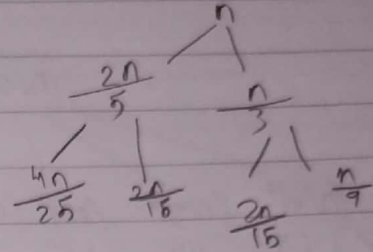 n
2n/5 n/3
4n/25 2n/15 2n/15 n/9